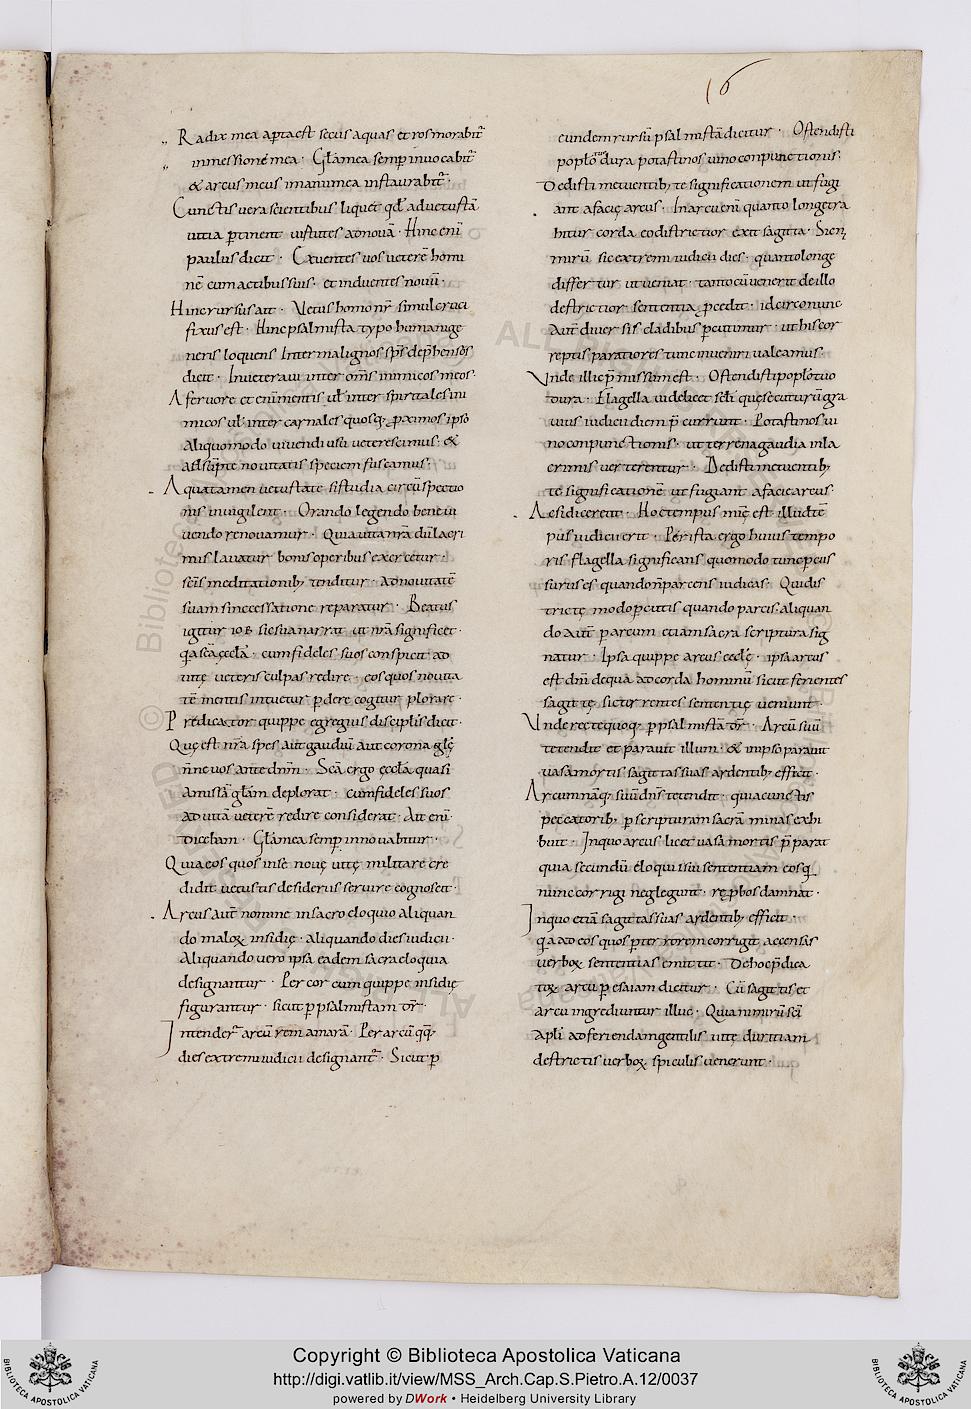 16
Radix mea aꝑta est secus aquas et ros morabit᷑
in messione mea · Gl̄a mea semꝑ innovabit᷑
& arcus meus in manu mea instaurabit᷑ ·
Cunctis vera scientibus liquet qđ ad vetustā
vitia ꝑtinent virtutes ad novā · Hinc eni͂
paulus dicit · Exuentes vos veterē homi
nē cum actibus suis · et induentes novū ·
Hinc rursus ait · Vetus homo nr̄ simul cruci
fixus est · Hinc psalmista typo humani ge
neris loquens inter malignos sp̄s dep̄hensos
dicit · Inveteravi inter om̄s inimicos meos ·
A fervore et enī mentis vl̄ inter spiritales ini
micos vl̄ inter carnales quosq; ꝓximos ipso
aliquomodo vivendi usu veterescimus · &
adsūpte novitatis speciem fuscamus ·
A qua tamen vetustate si studia circūspectio
nis invigilent · Orando legendo bene vi
vendo renovamur · Quia vita nr̄a dū lacri
mis lavatur bonis operibus exercetur ·
sc̄is meditationib; tenditur · ad novitatē
suam sine cessatione reparatur · Beatus
igitur iob sic sua narrat ut nr̄a significet ·
q̄a sc̄a ęccl̄a · cum fideles suos conspicit ad
vitę veteris culpas redire · eos quos novita
tē mentis intuetur ꝑdere cogitur plorare ·
Predicator quippe egregius discipulis dicit ·
Quę est nr̄a spes aut gaudiū aut corona gl̄ę
n̄ne vos ante dn̄m · Sc̄a ergo ęccl̄a quasi
amissā gl̄am deplorat · cum fideles suos
ad vitā veterē redire considerat · Ait eni͂ ·
Dicebam · Gl̄a mea semꝑ innovabitur ·
Quia eos quos in se novę vitę militare cre
didit vetustis desideriis servire cognoscit ·
Arcus aut̄ nomine in sacro eloquio aliquan
do maloꝝ insidię · aliquando dies iudicii ·
Aliquando vero ipsa eadem sacra eloquia
designantur · Per cor cum quippe insidię
figurantur · sicut ꝑ psalmistam dr̄ ·
Intender̄ arcū rem amarā · Per arcū q̄q;
dies extremi iudicii designant᷑ · Sicut ꝑ
eundem rursū psalmistā dicitur · Ostendisti
poplo tuo dura potasti nos vino conpunctionis ·
Dedisti metuentib; te significationem ut fugi
ant a facię arcus · In arcu eni͂ quanto longe tra
hitur corda eo districtior exit sagitta · Sic ni
mirū sic extremi iudicii dies · quanto longe
differtur ut veniat · tanto cū venerit de illo
destrictior sententia ꝓcedit · idcirco nunc
aut̄ diversis cladibus ꝑcutimur · ut his cor
reptis paratiores tunc inveniri valeamus ·
Unde illic p̄missum est · Ostendisti poplo tuo
dura · Flagella videlicet scdī quę secuturū gra
vius iudicii diem p̄currunt · Potasti nos vi
no conpunctionis · ut terrena gaudia in la
crimis verterentur · Dedisti metuentib;
te significationē ut fugiant a facie arcus ·
Ac si dicerent · Hoc tempus mię est · illud tē
pus iudicii erit · Per ista ergo huius tempo
ris flagella significans quomodo tunc ꝑcus
surus es quando n̄ parcens iudicas · Qui dis
trictę modo ꝑcutis quando parcis · aliquan
do aut̄ ꝑ arcum etiam sacra scriptura sig
natur · Ipsa quippe arcus ęccl̄ę · ipsa arcus
est dn̄i de qua ad corda hominū sicut ferientes
sagittę · sic terrentes sententię veniunt ·
Unde recte quoq; ꝑ psalmistā dr̄ · Arcū suū
tetendit et paravit illum · & in ipso paravit
vasa mortis sagittas suas ardentib; effecit ·
Arcum naq; suū dn̄s tetendit · quia cunctis
peccatorib; ꝑ scripturam sacrā minas exhi
buit · In quo arcus licet vasa mortis p̄parat
quia secundū eloquii sui sententiam eos q̄
nunc corrigi neglegunt · reꝓbos damnat ·
In quo etiā sagittas suas ardentib; effecit ·
q̄a ad eos quos ꝑ terrorem corrigit accensas
verboꝝ sententias emittit · De hoc p̄dica
toꝝ arcu ꝑ esaiam dicitur · Cū sagittis et
arcu ingredientur illuc · Quia nimirū sc̄i
apl̄i ad feriendam gentilis vitę duritiam
destrictis verboꝝ spiculis venerunt ·
Copyright © Biblioteca Apostolica Vaticana
http://digi.vatlib.it/view/MSS_Arch.Cap.S.Pietro.A.12/0037
powered by DWork • Heidelberg University Library